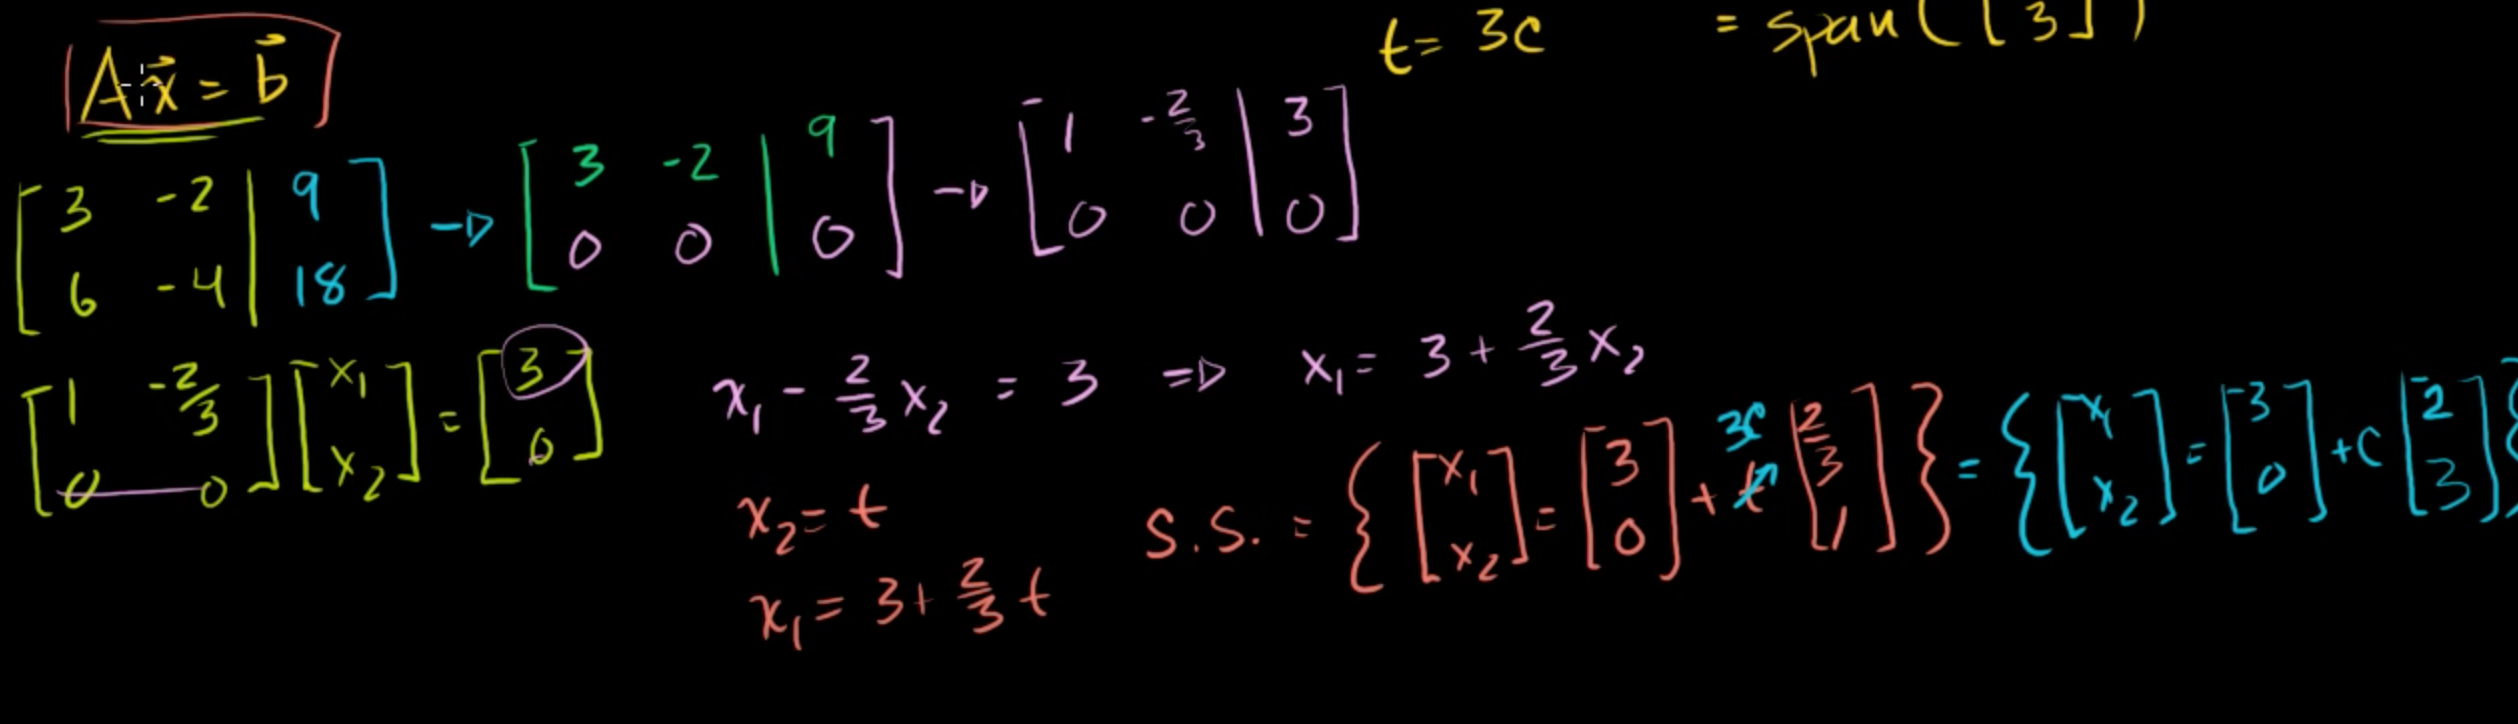 t = 3c = span([3])
Ax⃗ = b⃗
[3 -2 | 9; 6 -4 | 18] → [3 -2 | 9; 0 0 | 0] → [1 -2/3 | 3; 0 0 | 0]
[1 -2/3; 0 0][x₁; x₂] = [3; 0]
x₁ - 2/3 x₂ = 3 ⇒ x₁ = 3 + 2/3 x₂
x₂ = t
x₁ = 3 + 2/3 t
S.S. = {[x₁; x₂] = [3; 0] + t 3c [2/3; 1]} = {[x₁; x₂] = [3; 0] + c [2; 3]}